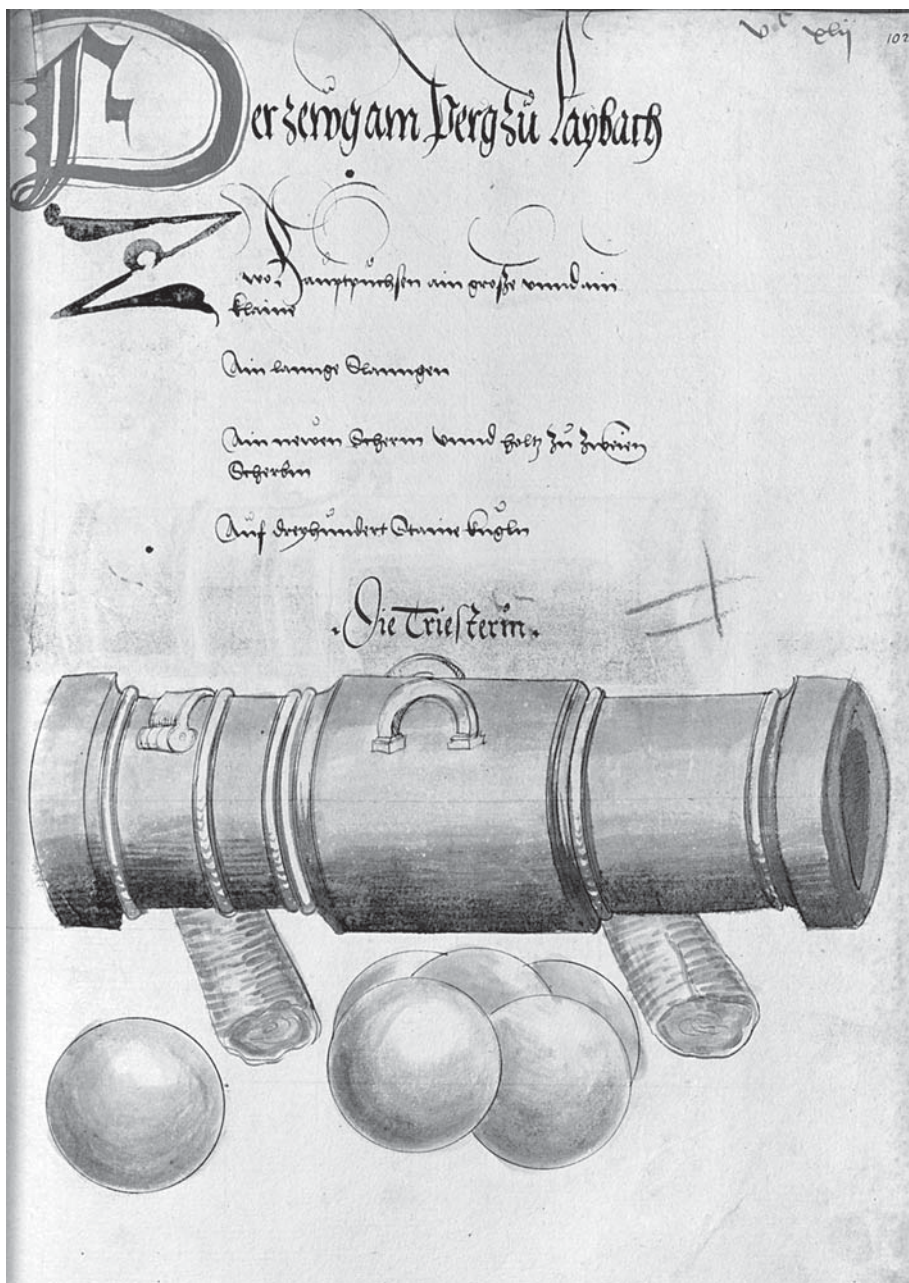 xlij 102
Der zewg am Perg zu Laybach
Zwo Hauptpüchsen ain große vnnd ain
klaine
Ain lannge Slanngen
Ain newen Scherm vnnd holtz zu zweien
Schermen
Auf dreyhundert Staine kugln
Die Triesterin